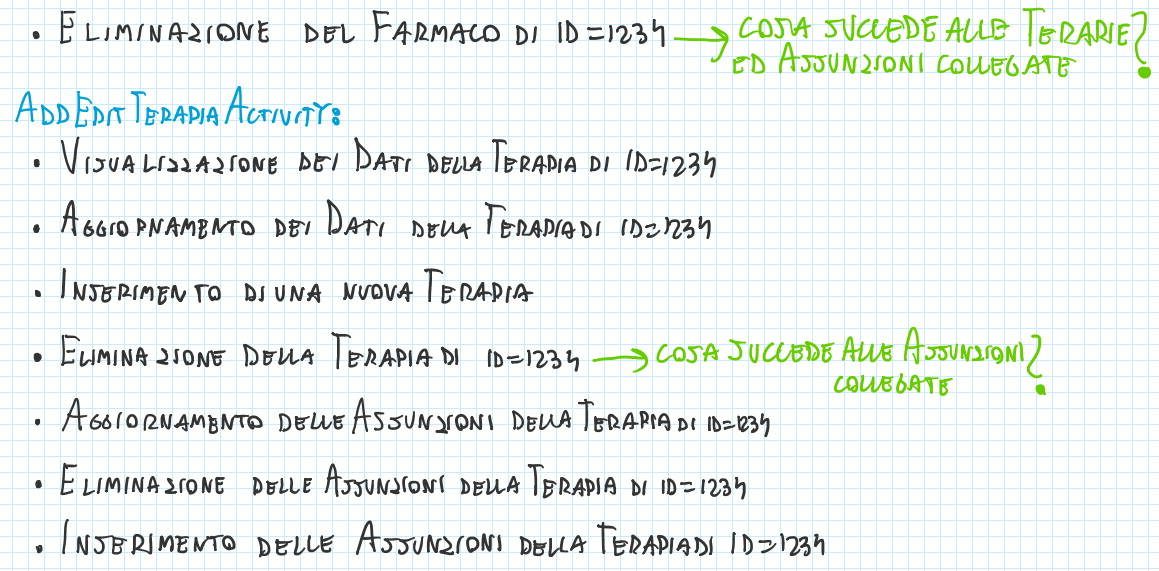 • ELIMINAZIONE DEL FARMACO DI ID=1234 → COSA SUCCEDE ALLE TERAPIE
ED ASSUNZIONI COLLEGATE?
ADDEDITTERAPIAACTIVITY:
• VISUALIZZAZIONE DEI DATI DELLA TERAPIA DI ID=1234
• AGGIORNAMENTO DEI DATI DELLA TERAPIA DI ID=1234
• INSERIMENTO DI UNA NUOVA TERAPIA
• ELIMINAZIONE DELLA TERAPIA DI ID=1234 → COSA SUCCEDE ALLE ASSUNZIONI
COLLEGATE?
• AGGIORNAMENTO DELLE ASSUNZIONI DELLA TERAPIA DI ID=1234
• ELIMINAZIONE DELLE ASSUNZIONI DELLA TERAPIA DI ID=1234
• INSERIMENTO DELLE ASSUNZIONI DELLA TERAPIA DI ID=1234